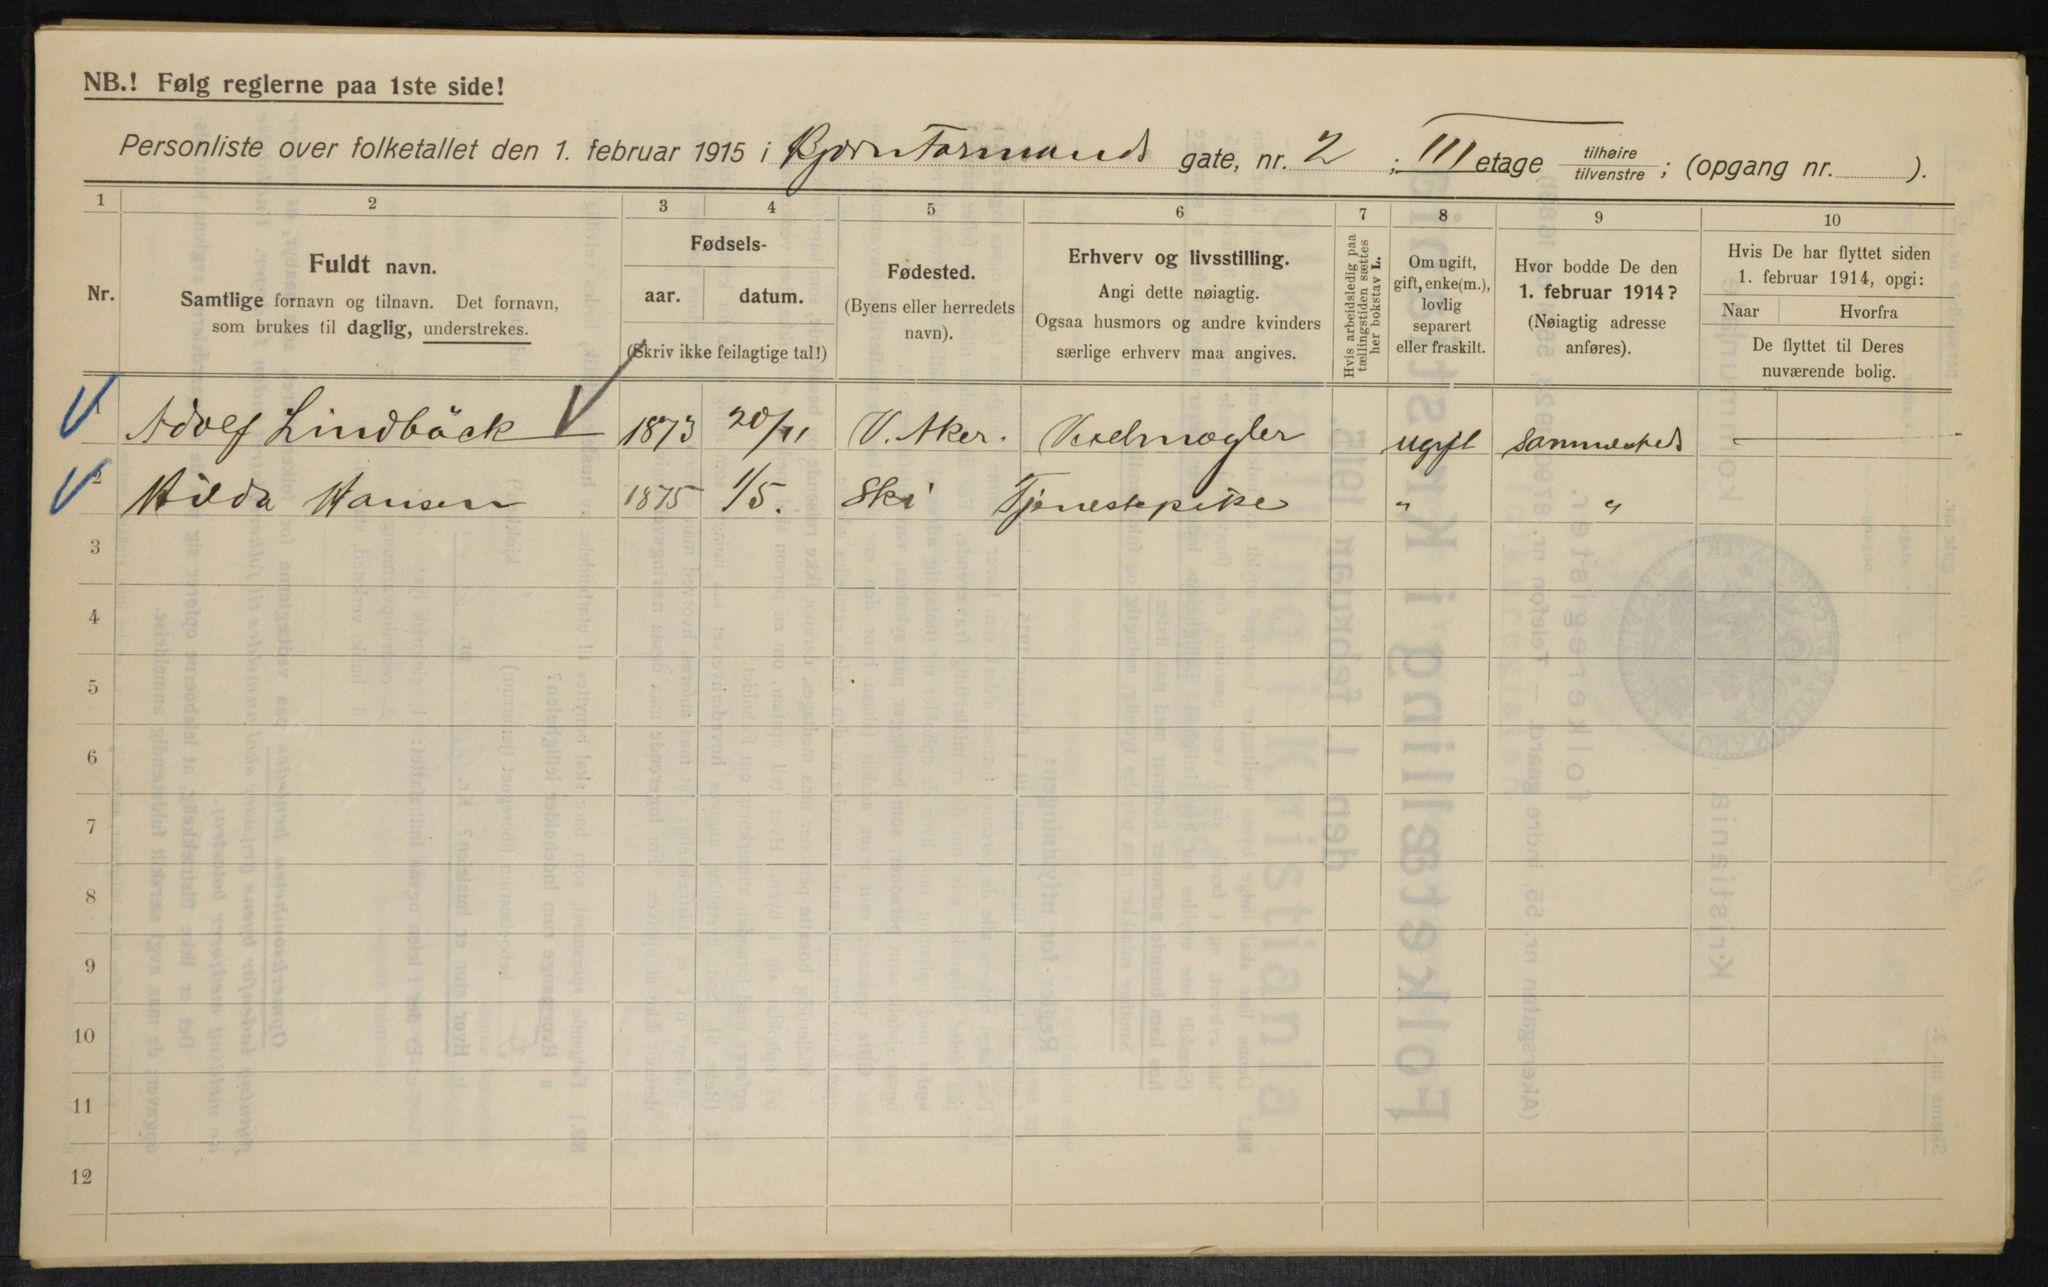 NB.! Følg reglerne paa 1ste side!
Personliste over folketallet den 1. februar 1915 i Bjørn Farmands gate, nr. 2 ; III etage tilhøire tilvenstre ; (opgang nr. ).
1 2 3 4 5 6 7 8 9 10
Nr.
Fuldt navn.
Samtlige fornavn og tilnavn. Det fornavn,
som brukes til daglig, understrekes.
Fødsels-
aar. datum.
(Skriv ikke feilagtige tal!)
Fødested.
(Byens eller herredets
navn).
Erhverv og livsstilling.
Angi dette nøiagtig.
Ogsaa husmors og andre kvinders
særlige erhverv maa angives.
Hvis arbeidsledig paa
tællingstiden sættes
her bokstav L.
Om ugift,
gift, enke(m.),
lovlig
separert
eller fraskilt.
Hvor bodde De den
1. februar 1914?
(Nøiagtig adresse
anføres).
Hvis De har flyttet siden
1. februar 1914, opgi:
Naar Hvorfra
De flyttet til Deres
nuværende bolig.
1 Adolf Lindbäck 1873 20/11 V. Aker. Vedmægler ugift sammesteds —
2 Hilda Hansen 1875 1/5. Ski Tjenestepike " "
3
4
5
6
7
8
9
10
11
12